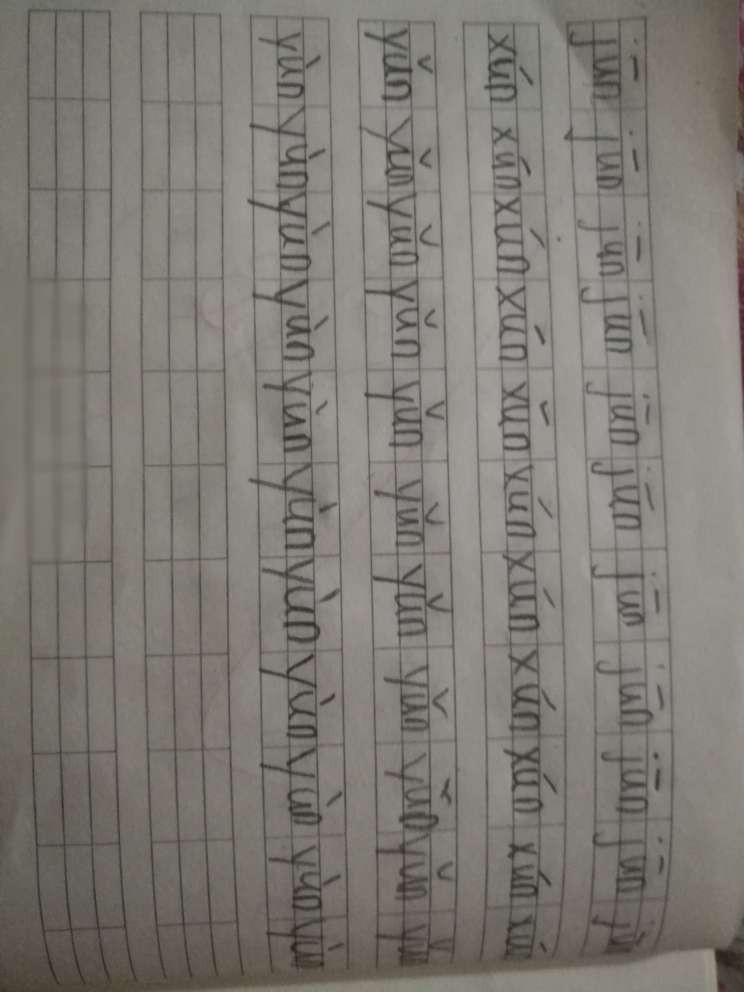 jūn jūn jūn jūn jūn jūn jūn jūn jūn jūn jū
xún xún xún xún xún xún xún xún xún xún xú
yǔn yǔn yǔn yǔn yǔn yǔn yǔn yǔn yǔn yǔn yǔn
yùn yùn yùn yùn yùn yùn yùn yùn yùn yùn yùn